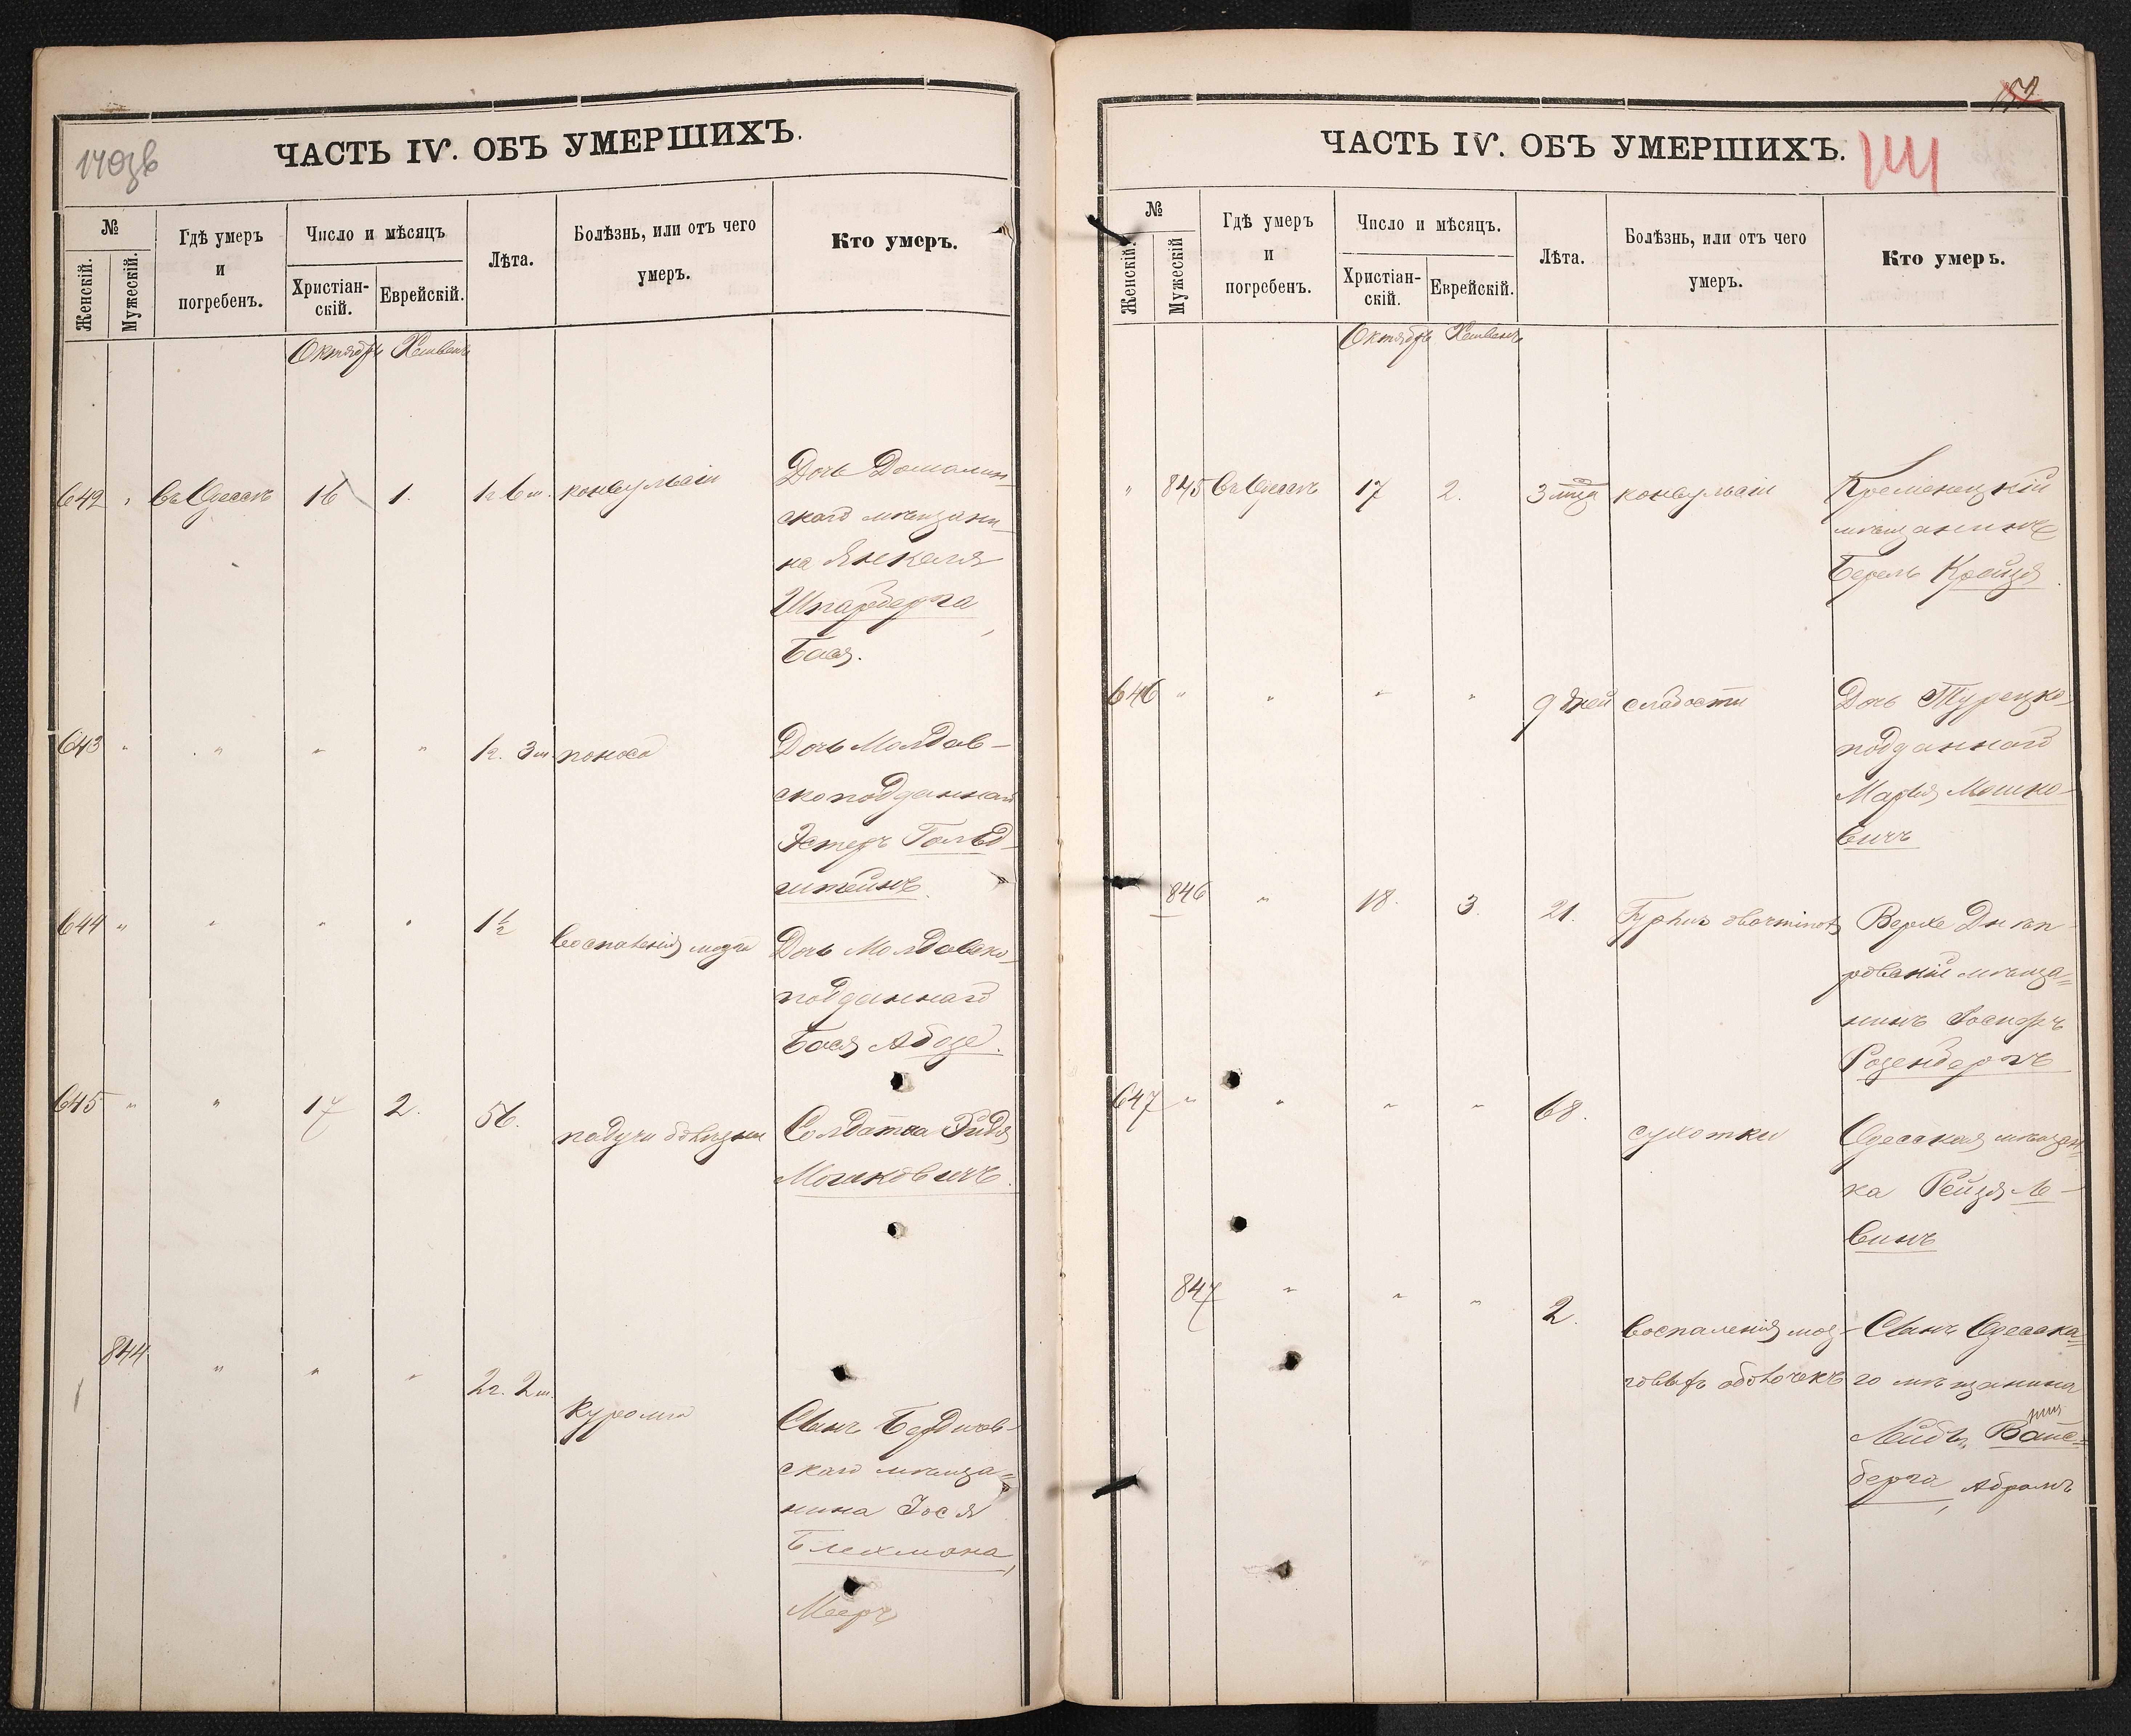 140зв
ЧАСТЬ IV. ОБЪ УМЕРШИХЪ.
№
Женскій.
Мужескій.
Гдѣ умеръ
и
погребенъ.
Число и мѣсяцъ
Христіан-
скій.
Еврейскій.
Лѣта.
Болѣзнь, или отъ чего
умеръ.
Кто умеръ.
Октябрь Хешвенъ
642 " въ Одессѣ 16 1. 1г. 6 м. конвульсіи Дочь
скаго мѣщани-
на Янкеля
Шпарберга,
Бася.
643 " " " " 1г. 3 м. поноса Дочь Молдав-
скоподданнаго
Эстеръ Гольд-
штейнъ.
644 " " " " 1½ воспаленія мозга Дочь Молдавско-
подданнаго
Бася Абозе.
645 " " 17 2. 56. падучи болѣзни Солдатка
Мошковичъ.
844 " " " 2г. 2 м.
Сынъ Бердичев-
скаго мѣща-
нина Іося
Блехмана,
Мееръ
152
ЧАСТЬ IV. ОБЪ УМЕРШИХЪ.
141
№
Женскій.
Мужескій
Гдѣ умеръ
и
погребенъ.
Число и мѣсяцъ.
Христіан-
скій.
Еврейскій.
Лѣта.
Болѣзнь, или отъ чего
умеръ.
Кто умеръ.
Октябрь Хешвенъ
" 845 въ Одессѣ 17 2. 3 мца конвульсіи Кременецкій
мѣщанинъ
Берель Крейця.
646 " " " " 9 дней слабости Дочь Турецко-
подданнаго
Марья Мошко-
вичъ
846 " 18. 3. 21. Typhus Верхне Днѣп-
ровскій мѣща-
нинъ Іосифъ
Розенбергъ
647 " " " " 68. сухотки Одесская мѣщан-
ка Рейзя Ле-
винъ
847 " " " 2. воспаленія моз- Сынъ Одесска-
говыхъ оболочекъ го мѣщанина
Лейбы Вайс-
берга, Абрамъ